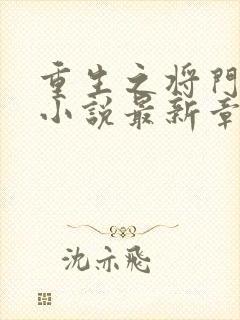 重生之将门
小说最新章
沈亦飛